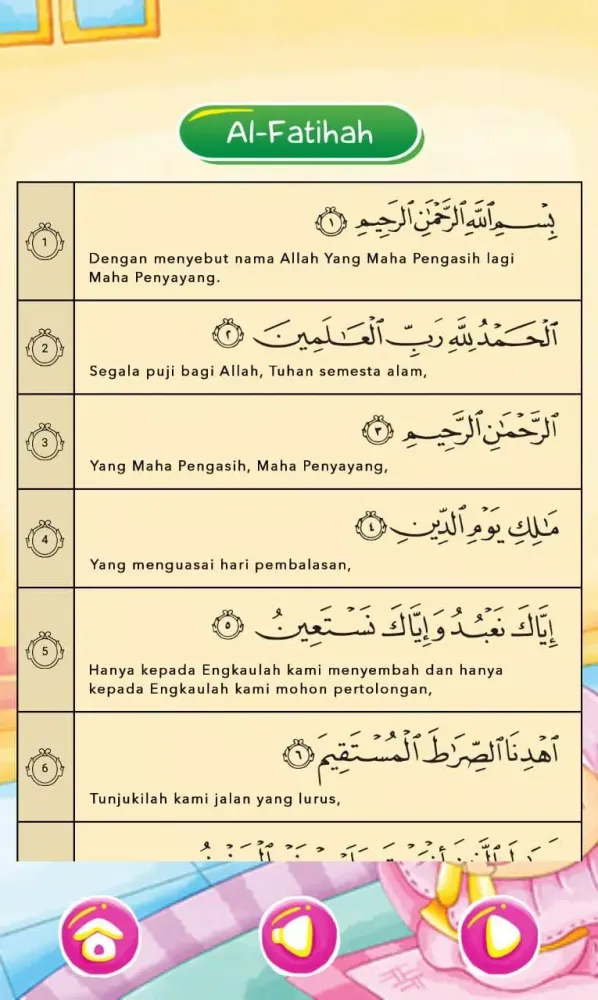 Al-Fatihah
1
بِسْمِ ٱللَّهِ ٱلرَّحْمَٰنِ ٱلرَّحِيمِ ١
Dengan menyebut nama Allah Yang Maha Pengasih lagi
Maha Penyayang.
2
ٱلْحَمْدُ لِلَّهِ رَبِّ ٱلْعَٰلَمِينَ ٢
Segala puji bagi Allah, Tuhan semesta alam,
3
ٱلرَّحْمَٰنِ ٱلرَّحِيمِ ٣
Yang Maha Pengasih, Maha Penyayang,
4
مَٰلِكِ يَوْمِ ٱلدِّينِ ٤
Yang menguasai hari pembalasan,
5
إِيَّاكَ نَعْبُدُ وَإِيَّاكَ نَسْتَعِينُ ٥
Hanya kepada Engkaulah kami menyembah dan hanya
kepada Engkaulah kami mohon pertolongan,
6
ٱهْدِنَا ٱلصِّرَٰطَ ٱلْمُسْتَقِيمَ ٦
Tunjukilah kami jalan yang lurus,